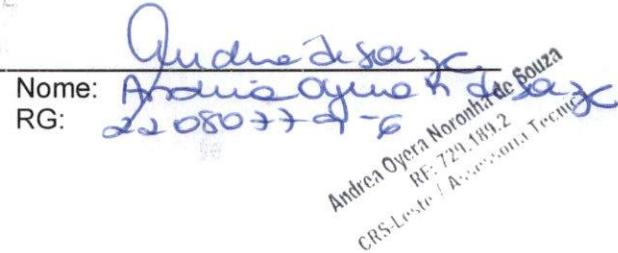 Andrea de Souza
Nome: Andrea Oyera N de Souza
RG: 22080779-6
Andrea Oyera Noronha de Souza
RF: 729.189.2
CRS-Leste / Assessoria Tecnica